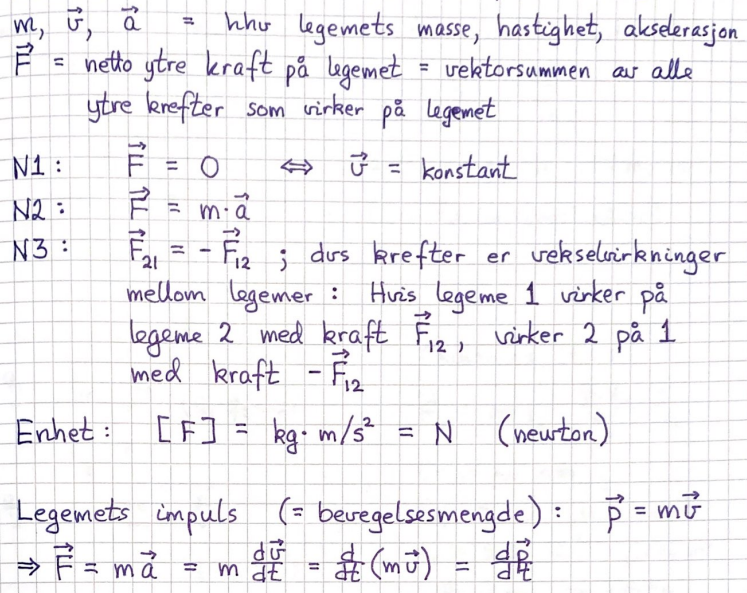 m, v⃗, a⃗ = hhv legemets masse, hastighet, akselerasjon
F⃗ = netto ytre kraft på legemet = vektorsummen av alle
ytre krefter som virker på legemet
N1: F⃗ = 0 ⇔ v⃗ = konstant
N2: F⃗ = m·a⃗
N3: F⃗₂₁ = - F⃗₁₂ ; dvs krefter er vekselvirkninger
mellom legemer : Hvis legeme 1 virker på
legeme 2 med kraft F⃗₁₂, virker 2 på 1
med kraft - F⃗₁₂
Enhet: [F] = kg·m/s² = N (newton)
Legemets impuls (= bevegelsesmengde): p⃗ = mv⃗
⇒ F⃗ = ma⃗ = m dv⃗/dt = d/dt (mv⃗) = dp⃗/dt